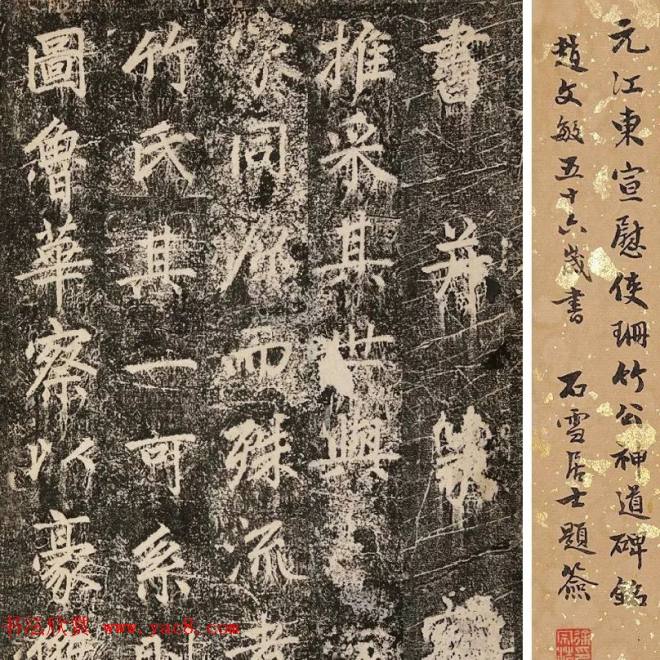 元江東宣慰使珊竹公神道碑銘
趙文敏五十六歲書　石雪居士題簽
書并篆
推采其世與
家同作而殊流
竹氏其一可系
圖魯華察以豪
书法欣赏 www.yac8.com